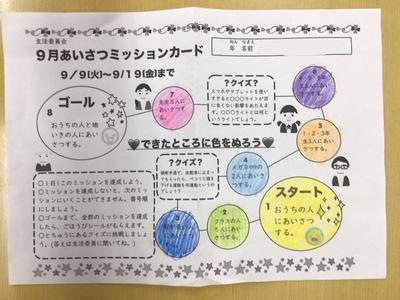 生活委員会
9月あいさつミッションカード
9/9(火)~9/19(金)まで
ねん なまえ
年 名前
ゴール
8 おうちの人と地いきの人にあいさつする。
7
先生5人にあいさつする。
?クイズ?
スマホやタブレットを使いすぎると〇〇〇ライトが目に良くない影響をあたえます。〇〇〇ライトとは何というライトでしょう。
6
5
1・2・3年生3人にあいさつする。
♥できたところに色をぬろう♥
?クイズ?
4
メガネや
2人にあいさつする。
3
2
クラスの
人にあいさつする。
スタート
1 おうちの人にあいさつする。
〇1日1このミッションを達成しよう。
〇ミッションを達成しないと、次のミッションにいくことができません。番号順にしましょう。
〇ゴールまで、全部のミッションを達成したら、ごほうびシールがもらえます。
〇とちゅうにあるクイズに挑戦しましょう。(答えは生活委員に聞いてね。)